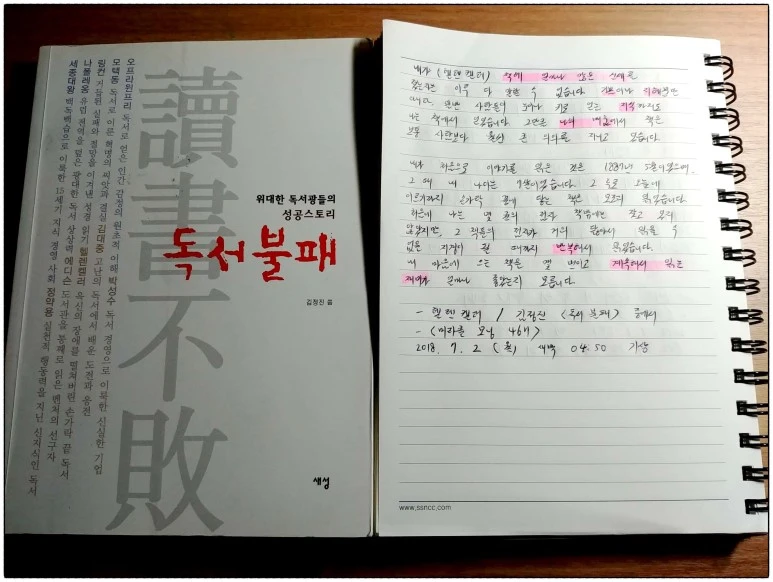 讀書不敗
위대한 독서광들의
성공스토리
독서불패
김정진 씀
오프라윈프리 독서로 얻은 인간 감정의 원초적 이해 박성수 독서 경영으로 이룩한 신실한 기업
모택동 독서로 이룬 혁명의 씨앗과 결실 김대중 고난의 독서에서 배운 도전과 응전
링컨 거듭된 실패와 절망을 이겨낸 성경 읽기 헬렌켈러 육신의 장애를 떨쳐버린 손가락 끝 독서
나폴레옹 유럽 전역을 덮은 광대한 독서 상상력 에디슨 도서관을 통째로 읽은 벤처의 선구자
세종대왕 백독백습으로 이룩한 15세기 지식 경영 사회 정약용 실천적 행동력을 지닌 신지식인 독서
새성
내가 (헬렌켈러) 책에 얼마나 많은 신세를
이루 다 말할 수 없습니다.
사람들이 귀로 얻는 지식까지도
나는 책에서 얻었습니다. 그만큼 나의 배움에서 책은
보통 사람보다 훨씬 큰 의의를 지니고 있습니다.
내가 처음으로 이야기를 읽은 것은 1887년 5월이었으며,
그 때 내 나이는 7살이었습니다. 그 후로 오늘에
이르기까지 손가락 끝에 닿는 것은 모조리 읽었습니다.
처음에 나는 몇 권의 점자 책밖에는 갖고 있지
않았지만, 그 책들의 점자가 거의 닳아서 읽을 수
없을 지경이 될 때까지 반복해서 읽었습니다.
내 마음에 드는 책을 몇 번이고 계속해서 읽는
재미가 얼마나 좋았는지 모릅니다.
- 헬렌켈러 / 김정진 <독서불패> 중에서
- <미라클 모닝 467>
2018. 7. 2 (월) 새벽 04:50 기상
www.ssncc.com